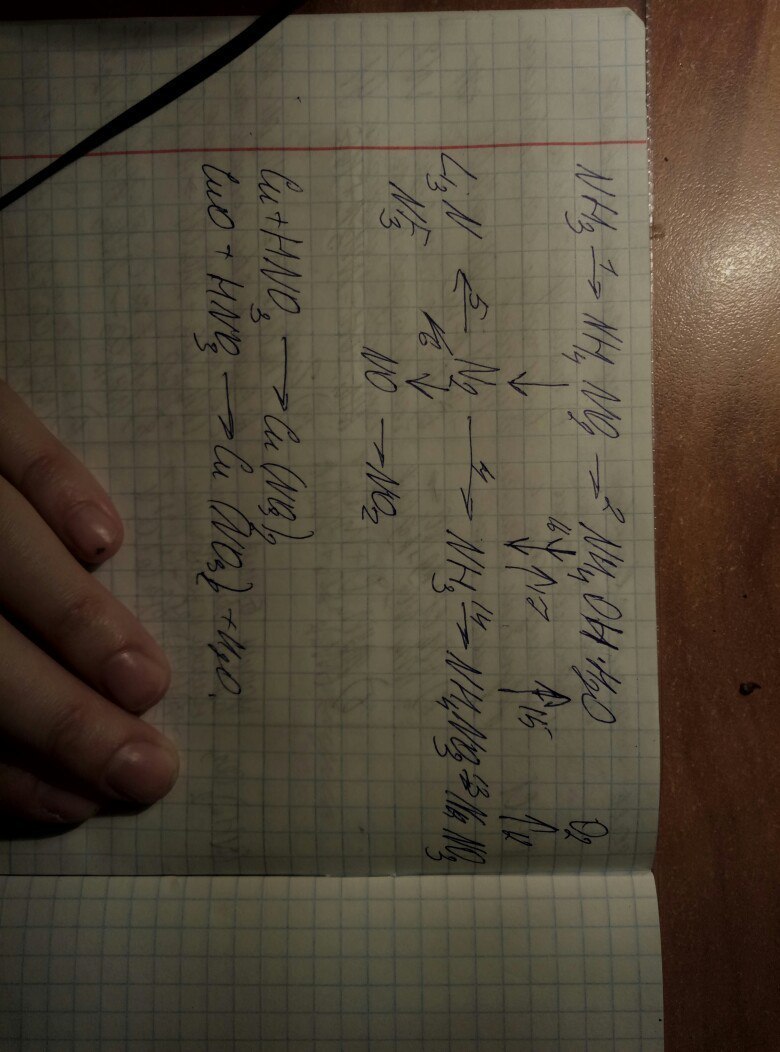 NH₃ →¹ NH₄NO₃ →² NH₄OH·H₂O O₂
↑ 16 ↑↓ 17 ↑ 15 ↑
Li₃N ⇄⁵ N₂ →⁴ NH₃ →¹⁴ NH₄NO₃ →¹³ NaNO₃
NF₃ ↓
NO → NO₂
Cu + HNO₃ → Cu(NO₃)₂
CuO + HNO₃ → Cu(NO₃)₂ + H₂O.